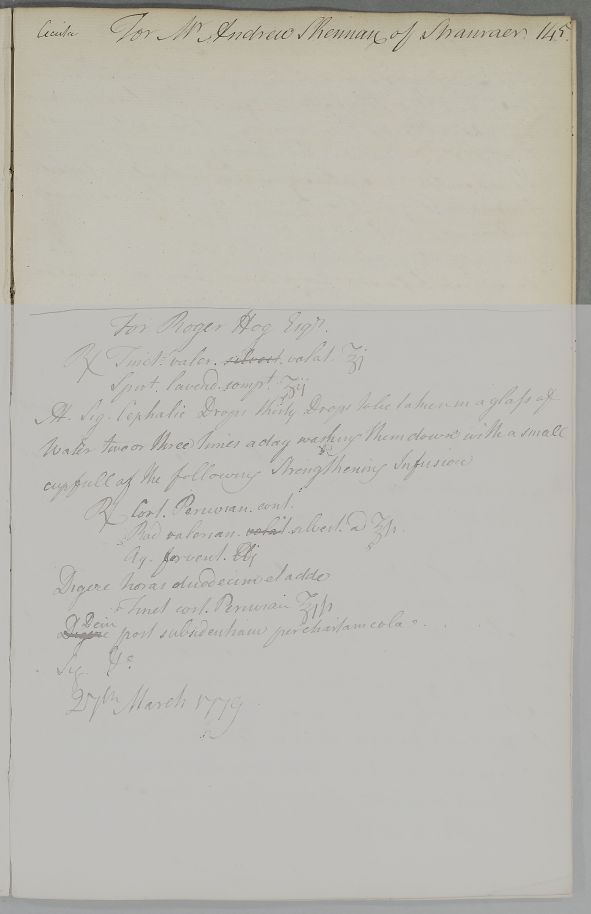 Cicuta For Mr Andrew Skennan of Stranraer 145.
For Roger Hog Esqr.
Rx Tinct. valer. silvest. volat. ʒj
Spirt. lavend. compt. ʒij
M. Sig. Cephalic Drops thirty Drops to be taken in a glass of
Water two or three times a day washing them down with a small
cupfull of the following Strengthening Infusion
Rx Cort. Peruvian. cont.
Rad valerian. volat. silvest. a ʒß.
Aq. fervent. ℔j
Digere horas duodecim et adde
Tinct cort. Peruvian ʒjß
Digere Dein post subsidentiam per chartam cola
Sig. &c
27th March 1779